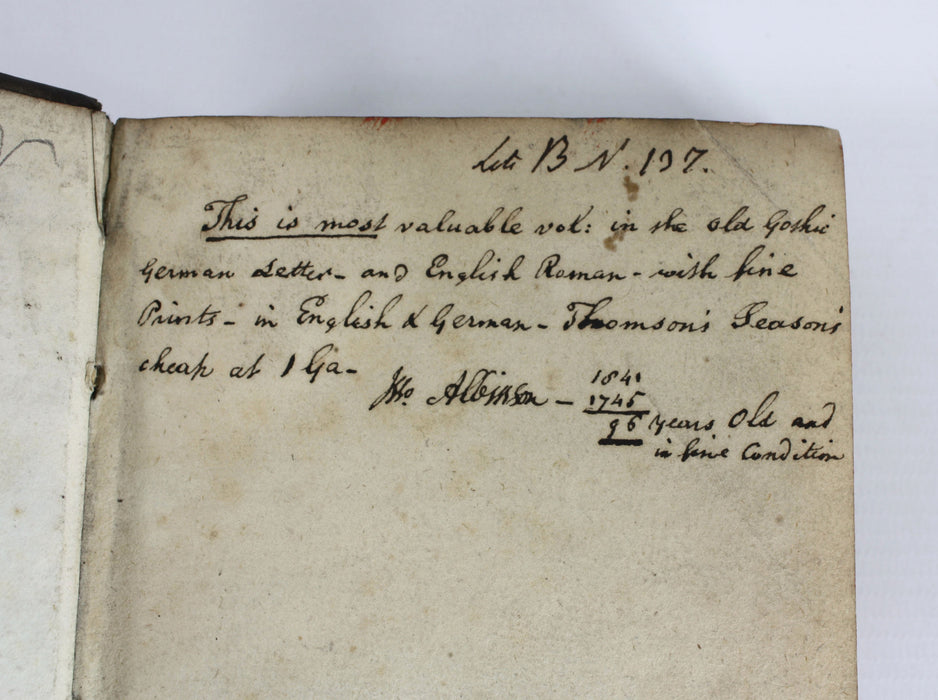 Lett B N. 137.
This is most valuable vol: in the old Gothic
German Letter - and English Roman - with fine
Prints - in English & German - Thomson's Season's
cheap at 1 Ga -
Jno. Albinson - 1841
1745
96 years Old and
in fine Condition